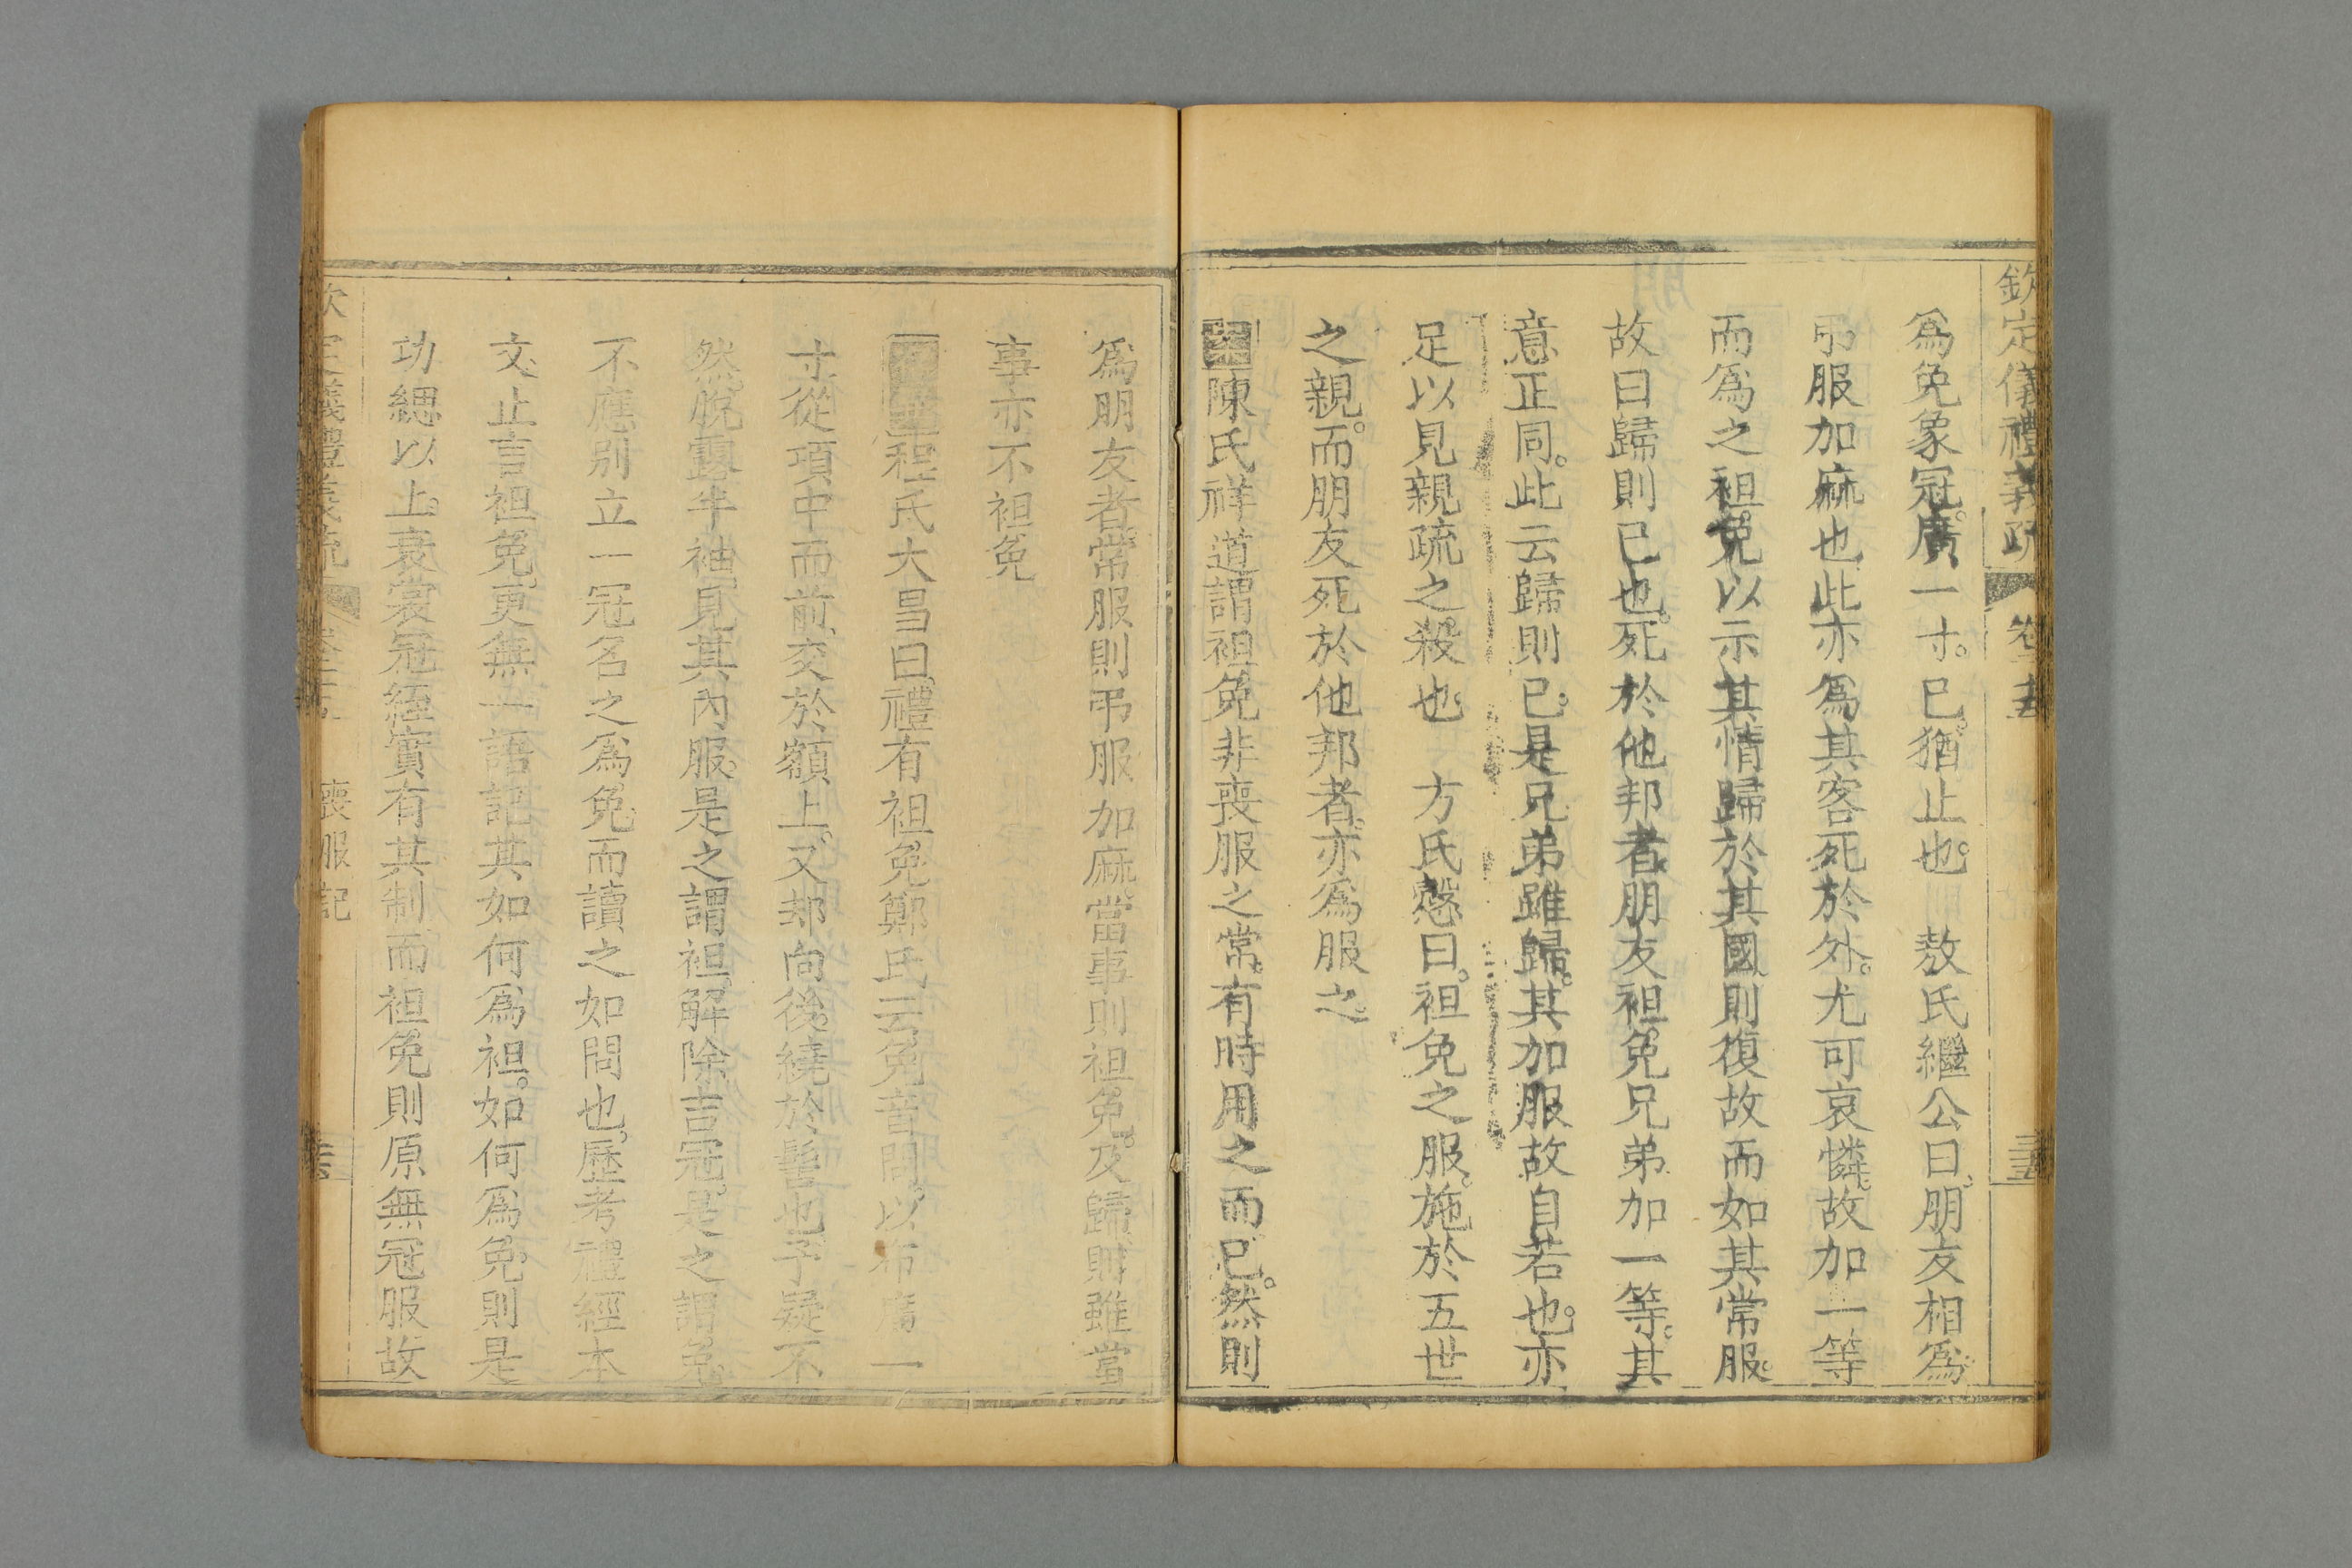 欽定儀禮義疏 卷二十五 三五
為免象冠。廣一寸。已。猶止也。 敖氏繼公曰、朋友相為
弔服加麻也此亦為其客死於外。尤可哀憐。故加一等
而為之袒免。以示其情歸於其國則復故而如其常服。
故曰歸則已也。死於他邦者朋友袒免兄弟加一等。其
意正同。此云歸則已。是兄弟雖歸。其加服故自若也。亦
足以見親疏之殺也。 方氏慤曰。袒免之服。施於五世
之親。而朋友死於他邦者。亦為服之。
陳氏祥道謂袒免非喪服之常。有時用之而已。然則
為朋友者。常服則弔服加麻。當事則袒免。及歸則雖當
事亦不袒免
程氏大昌曰、禮有袒免鄭氏云免音問。以布廣一
寸從項中而前交於額上。又却向後。繞於髻也予疑不
然。脫露半袖見其內服。是之謂袒。解除吉冠。是之謂免。
不應別立一冠名之為免。而讀之如問也。歷考禮經本
文、止言袒免、更無一語記其如何為袒。如何為免、則是
功緦以上。衰裳冠絰實有其制而袒免則原無冠服故
欽定儀禮義疏 卷二十五 喪服記